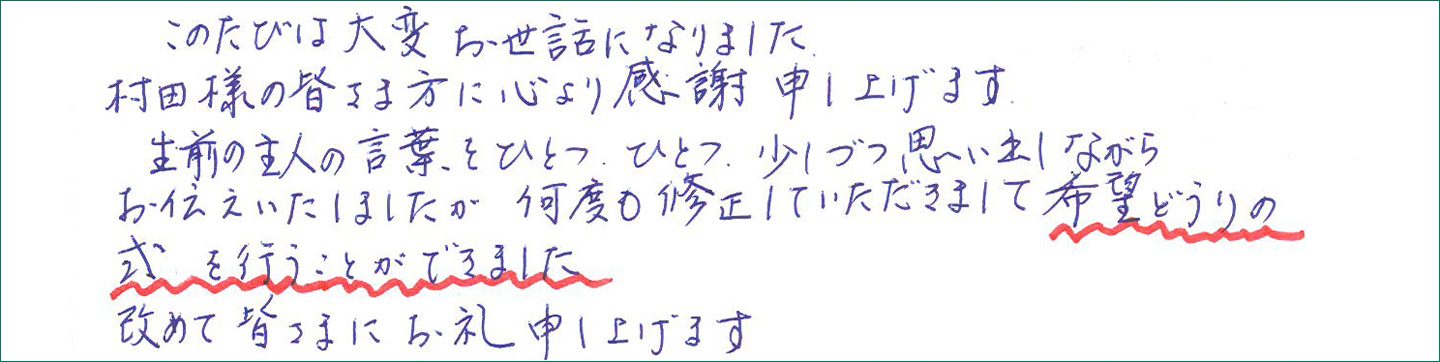 このたびは大変お世話になりました.
村田様の皆さま方に心より感謝申し上げます.
生前の主人の言葉、をひとつ.ひとつ.少しづつ思い出しながら
お伝えいたしましたが何度も修正していただきまして希望どうりの
式を行うことができました
改めて皆さまにお礼申し上げます